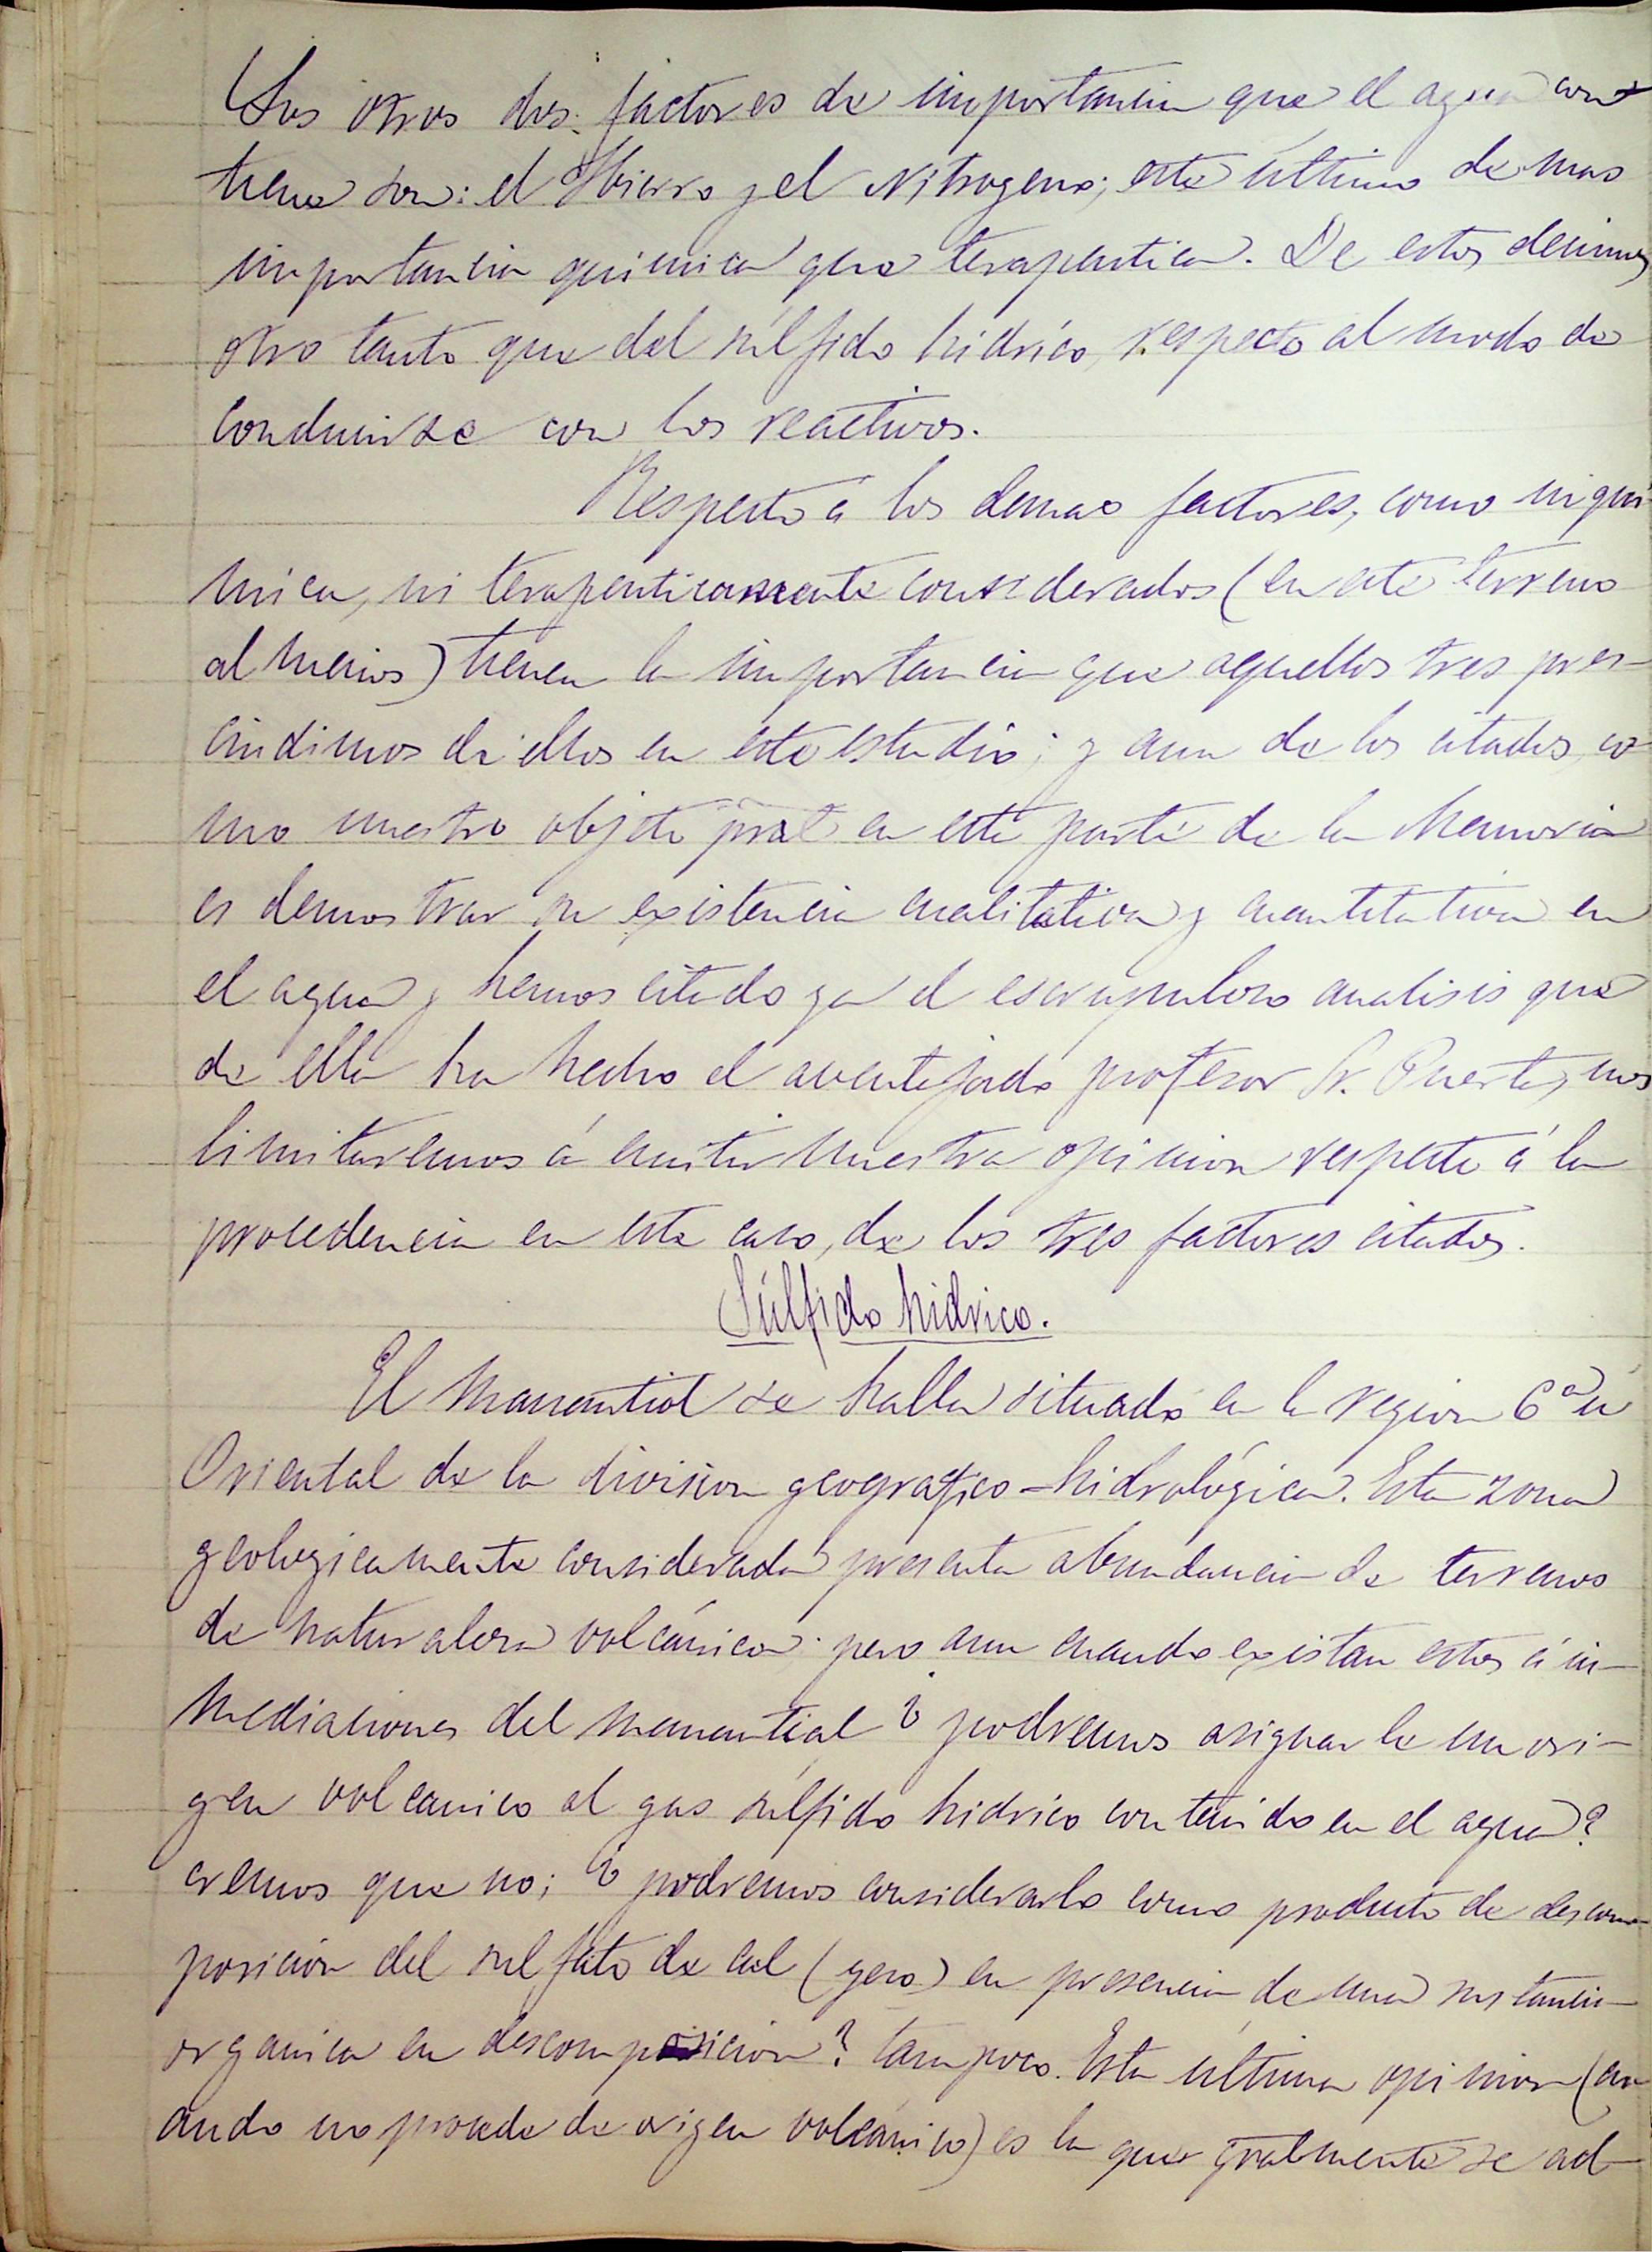 Los otros dos factores de importancia que el agua con-
tiene son: el Hierro y el Nitrogeno; este último de mas
importancia quimica que terapeutica. De estos decimos
otro tanto que del súlfido hídrico, respecto al modo de
conducirse con los reactivos.
Respecto á los demas factores, como ni quí-
mica, ni terapeuticamente considerados (en este terreno
al menos) tienen la importancia que aquellos tres pres-
cindimos de ellos en este estudio; y aun de los citados, co-
mo nuestro objeto pral en esta parte de la Memoria
es demostrar su existencia cualitativa y cuantitativa en
el agua y hemos citado ya el escrupuloso analisis que
de ella ha hecho el aventajado profesor Sr. Puerta, nos
limitaremos á emitir nuestra opinion respecto á la
procedencia en este caso, de los tres factores citados.
Súlfido hidrico.
El manantial se halla situado en la region 6ª ú
Oriental de la division geografico-hidrológica. Esta zona
geologicamente considerada presenta abundancia de terrenos
de naturaleza volcánica; pero aun cuando existan estos á in-
mediaciones del manantial ¿podremos asignarle un orí-
gen volcanico al gas súlfido hidrico contenido en el agua?
creemos que no; ¿podremos considerarlo como producto de descom-
posición del sulfato de cal (yeso) en presencia de una sustancia
organica en descomposicion? tampoco. Esta última opinion (cu-
ando no procede de origen volcánico) es la que gralmente se ad-